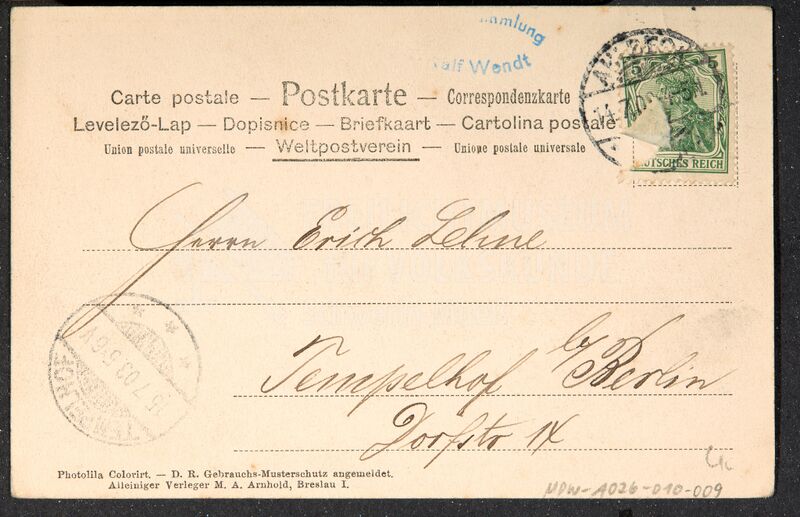 mmlung
alf Wendt
Carte postale — Postkarte — Correspondenzkarte
Levelező-Lap — Dopisnice — Briefkaart — Cartolina postale
Union postale universelle — Weltpostverein — Unione postale universale
5
UTSCHES REICH
Herrn Erich Lehne
15.7.03.5-6V
TEMPELHOF
Tempelhof b/Berlin
Dorfstr
Photolila Colorirt. — D. R. Gebrauchs-Musterschutz angemeldet.
Alleiniger Verleger M. A. Arnhold, Breslau I.
NDW-A026-010-009